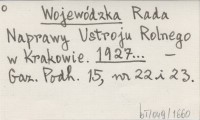 Wojewódzka Rada
Naprawy Ustroju Rolnego
w Krakowie. 1927... —
Gaz. Podh. 15, nr 22 i 23.